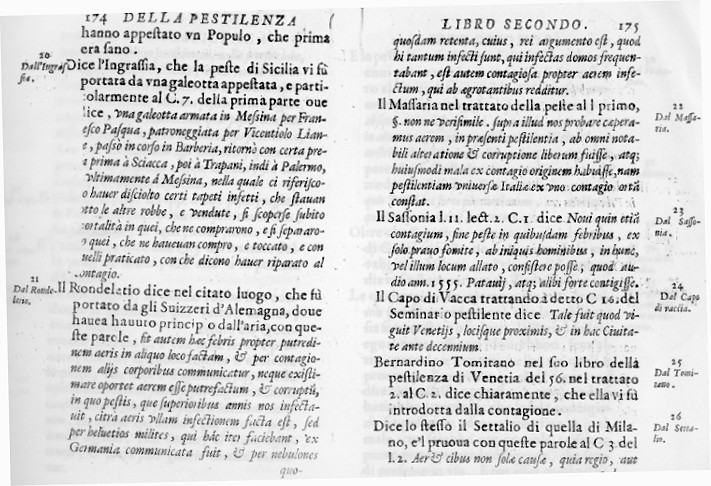 174 DELLA PESTILENZA
hanno appestato vn Populo, che prima
era sano.
20
Dall'Ingras
sia.
Dice l'Ingrassia, che la peste di Sicilia vi fù
portata da vna galeotta appestata, e parti-
colarmente al C. 7. della prima parte oue
dice, vna galeotta armata in Messina per Fran-
cesco Pasqua, patroneggiata per Vicentiolo Lian-
e, passò in corso in Barberia, ritornò con certa pre-
e prima à Sciacca, poi à Trapani, indi à Palermo,
vltimamente à Messina, nella quale ci riferisco-
o hauer disciolto certi tapeti infetti, che stauan
otto le altre robbe, e vendute, si scoperse subito
ortalità in quei, che ne comprarono, e si separaro-
o quei, che ne haueuan compro, e toccato, e con
uelli praticato, con che dicono hauer riparato al
contagio.
21
Dal Ronde-
letio.
Il Rondeletio dice nel citato luogo, che fù
portato da gli Suizzeri d'Alemagna, doue
hauea hauuto princip o dall'aria, con que-
ste parole, fit autem hæc febris propter putredi-
nem aeris in aliquo loco factam, & per contagio-
nem alijs corporibus communicatur, neque existi-
mare oportet aerem esse putrefactum, & corruptũ,
in quo pestis, que superioribus annis nos infecta-
uit, citrà aeris vllam infectionem facta est, sed
per heluetios milites, qui hác itei faciebant, ex
Germania communicata fuit, & per nebulones
quo-
LIBRO SECONDO. 175
quosdam retenta, cuius, rei argumento est, quod
hi tantum infecti sunt, qui infectas domos frequen-
tabant, est autem contagiosa propter aerem infe-
ctum, qui ab ægrotantibus redditur.
22
Dal Massa-
ria.
Il Massaria nel trattato della peste al l primo,
§. non ne verisimile. supra illud nos probare cæpera-
mus aerem, in præsenti pestilentia, ab omni nota-
bili alteratione & corruptione liberum fuisse, atq;
huiusmodi mala ex contagio originem habuisse, nam
pestilentiam vniuersæ Italiæ ex vno contagio ortã
constat.
23
Dal Sasso-
nia.
Il Sassonia l. 11. lect. 2. C. 1. dice Noui quin etiã
contagium, sine peste in quibusdam febribus, ex
solo prauo fomite, ab iniquis hominibus, in hunc,
vel illum locum allato, consistere posse, quod au-
dio ann. 1555. Patauij, atq; alibi forte contigisse.
24
Dal Capo
di vaccia.
Il Capo di Vacca trattando à detto C 16. del
Seminar o pestilente dice Tale fuit quod vi-
guit Venetijs, locisque proximis, & in hac Ciuita-
te ante decennium.
25
Dal Tomi-
tano.
Bernardino Tomitano nel suo libro della
pestilenza di Venetia del 56. nel trattato
2. al C. 2. dice chiaramente, che ella vi fù
introdotta dalla contagione.
26
Dal Setta-
lio.
Dice lo stesso il Settalio di quella di Mila-
no, e'l pruoua con queste parole al C 3. del
l. 2. Aer & cibus non solæ causæ, quia regio, aut